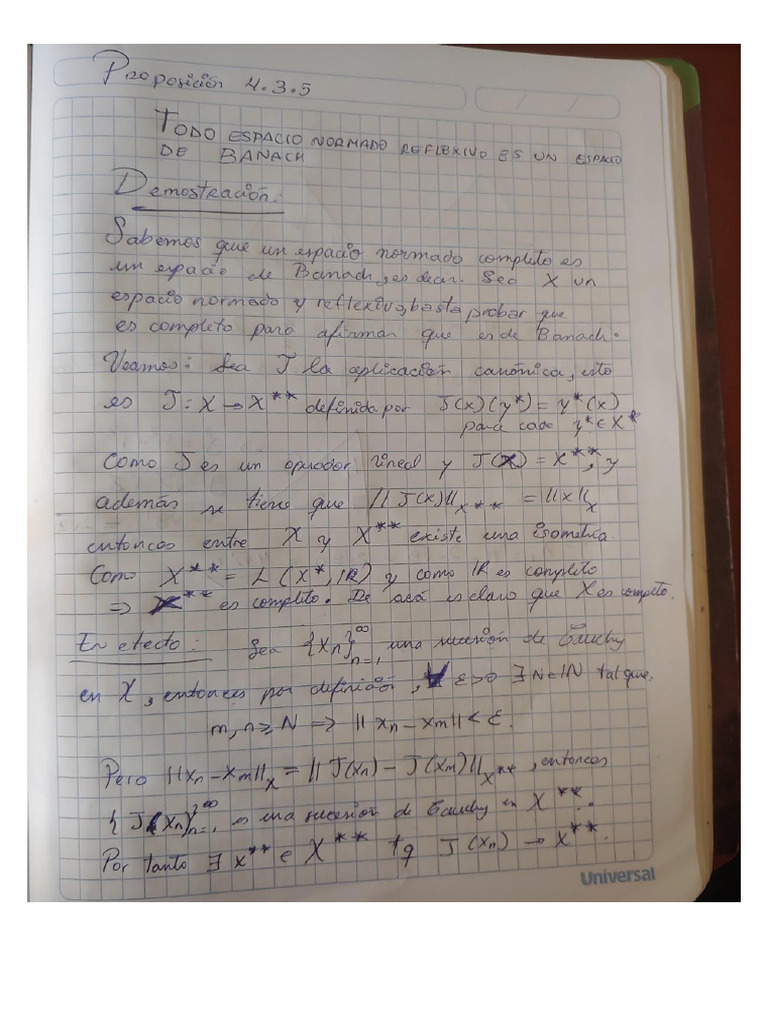 Proposición 4.3.5
TODO ESPACIO NORMADO REFLEXIVO ES UN ESPACIO
DE BANACH
Demostración:
Sabemos que un espacio normado completo es
un espacio de Banach, es decir. Sea X un
espacio normado y reflexivo, basta probar que
es completo para afirmar que es de Banach.
Veamos: Sea J la aplicación canónica, esto
es J: X → X** definida por J(x)(y*) = y*(x)
para cada y* ∈ X*
Como J es un operador lineal y J(X) = X**, y
además se tiene que ||J(x)||_X** = ||x||_X
entonces entre X y X** existe una isometría.
Como X** = L(X*, IR) y como IR es completo
⇒ X** es completo. De acá es claro que X es completo.
En efecto: Sea {Xn}_{n=1}^∞ una sucesión de Cauchy
en X, entonces por definición, ∀ ε>0 ∃ N∈IN tal que.
m, n ≥ N ⟹ ||xn - xm|| < ε.
Pero ||xn - xm||_X = ||J(xn) - J(xm)||_X**, entonces
{J(xn)}_{n=1}^∞ es una sucesión de Cauchy en X**.
Por tanto ∃ x** ∈ X** tq J(xn) → x**.
Universal